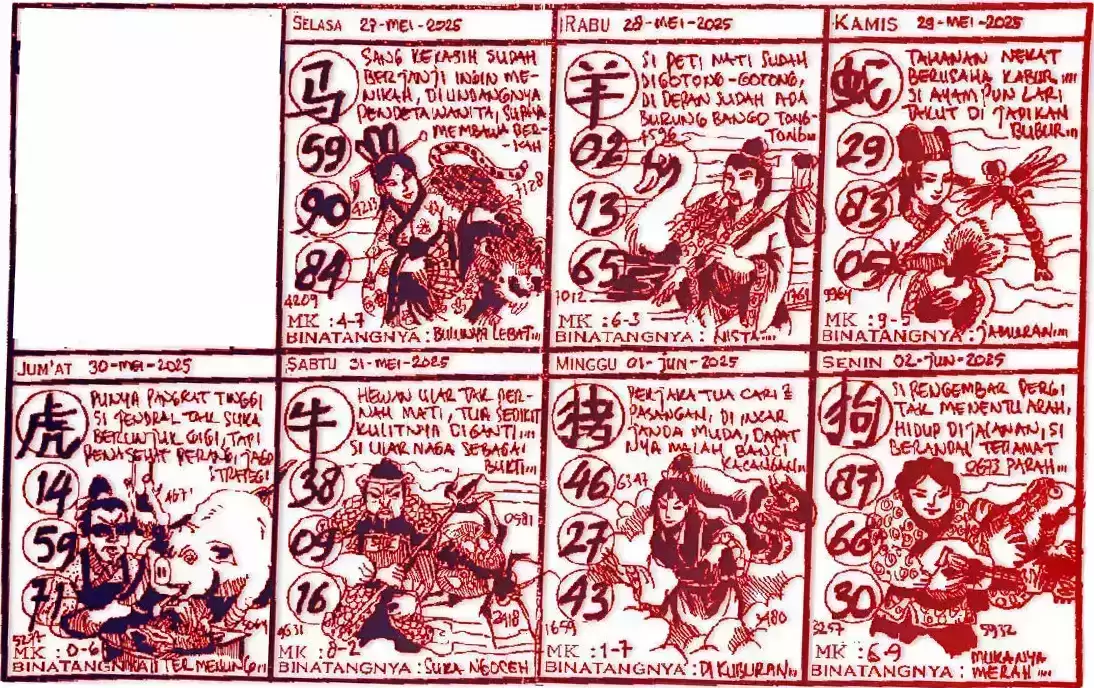 SELASA 27-MEI-2025
马
SANG KEKASIH SUDAH
BERJANJI INGIN ME-
NIKAH, DIUNDANGNYA
PENDETA WANITA, SUPAYA
MEMBAWA BER-
-KAH
59
90
84
4213
7128
4209
MK : 4-7
BINATANGNYA : BULUNYA LEBAT...
RABU 28-MEI-2025
羊
SI PETI MATI SUDAH
DIGOTONG-GOTONG,
DI DEPAN SUDAH ADA
BURUNG BANGO TONG-
TONG...
4526
02
13
65
7012
1761
MK : 6-3
BINATANGNYA : NISTA...
KAMIS 29-MEI-2025
蛇
TAHANAN NEKAT
BERUSAHA KABUR...
SI AYAM PUN LARI
TAKUT DI JADIKAN
BUBUR...
29
83
05
MK : 9-5
BINATANGNYA : JAMURAN...
JUM'AT 30-MEI-2025
虎
PUNYA PANGKAT TINGGI
SI JENDRAL TAK SUKA
BERUNJUK GIGI, TAPI
PENASEHAT PERANG, JAGO
STRATEGI
14
59
71
4671
5257
MK : 0-6
BINATANGNYA :
SABTU 31-MEI-2025
牛
HEWAN ULAR TAK PER-
NAH MATI, TUA SEDIKIT
KULITNYA DIGANTI...
SI ULAR NAGA SEBAGAI
BUKTI...
38
09
16
0581
2418
4631
MK : 8-2
BINATANGNYA : SUKA NGOCEH
MINGGU 01-JUN-2025
猪
PERJAKA TUA CARI2
PASANGAN, DI INKAR
JANDA MUDA, DAPAT
NYA MALAH BANCI
KACANGAN...
46
27
43
6347
1659
3480
MK : 1-7
BINATANGNYA : DIKUBURAN...
SENIN 02-JUN-2025
狗
SI PENGEMBAR PERGI
TAK MENENTU ARAH,
HIDUP DIJALANAN, SI
BERANDAL TERAMAT
PARAH...
0673
87
66
30
3257
5932
MK : 6-9
BINATANGNYA : MUKANYA
MERAH...